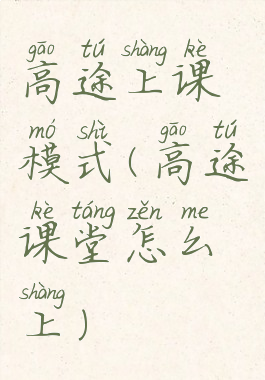 gāo tú shàng kè
高途上课
mó shì gāo tú
模式(高途
kè táng zěn me
课堂怎么
shàng
上)